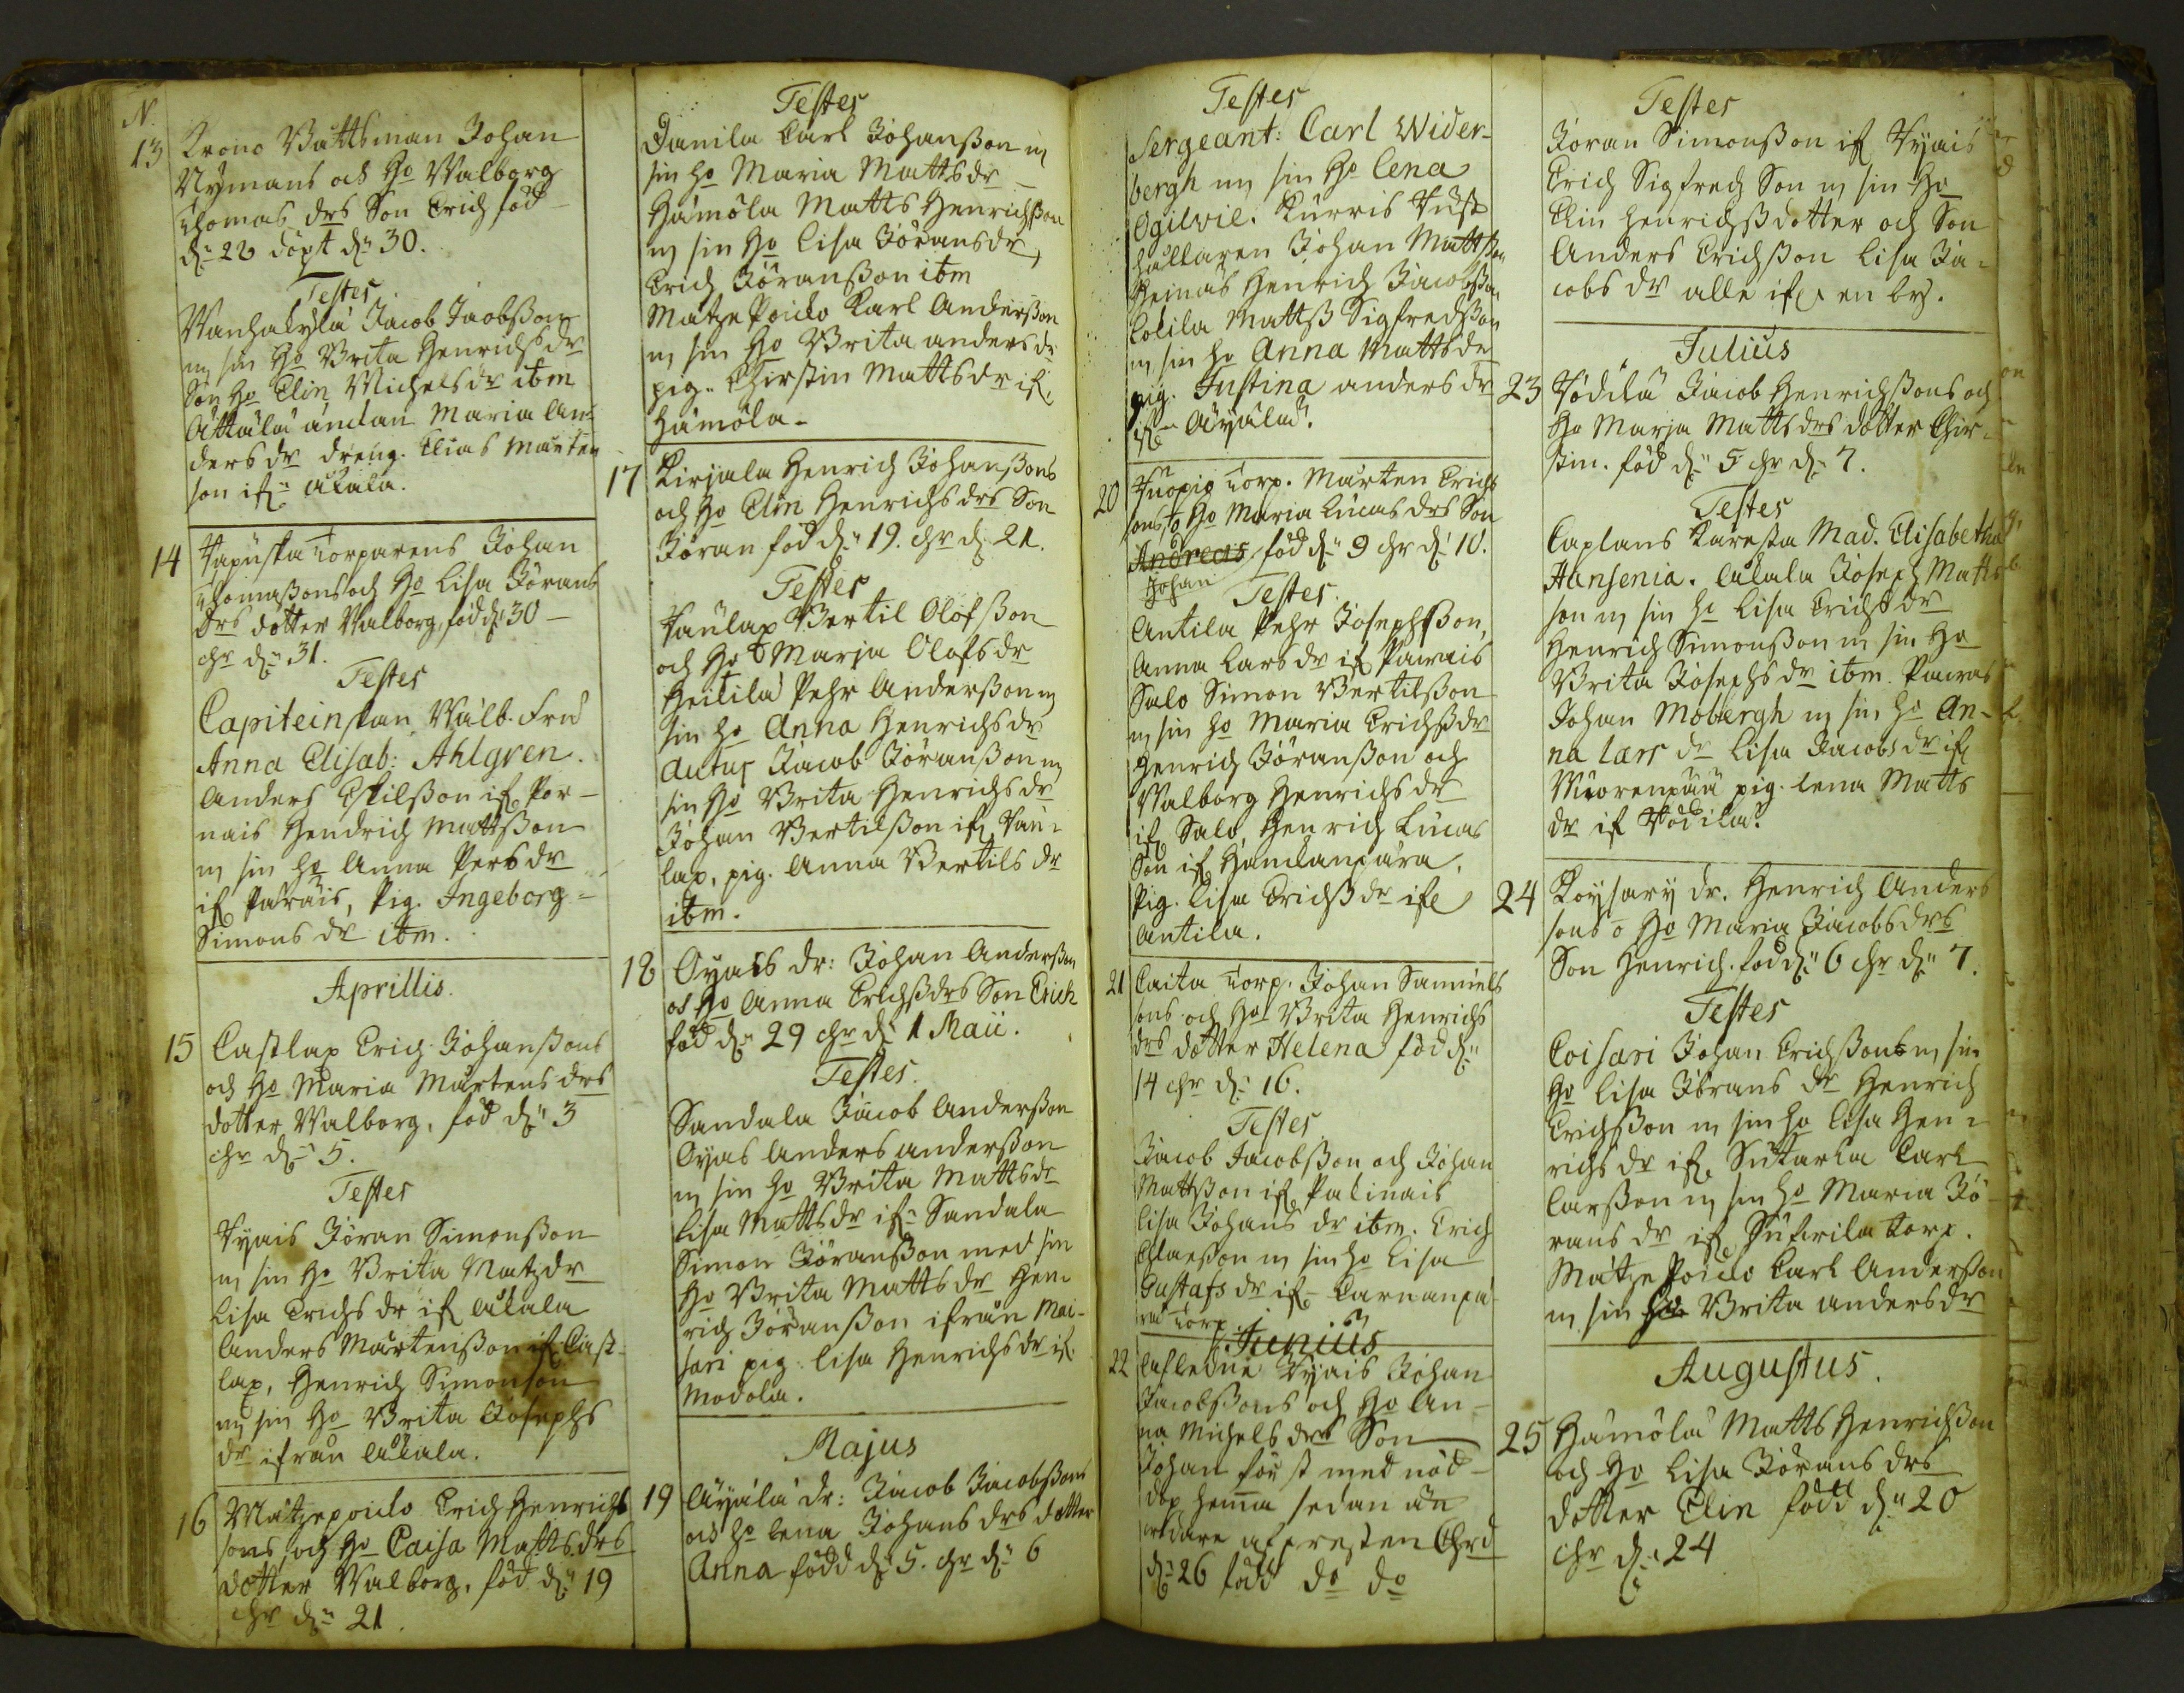 N.
13 Krono Båttsman Johan
Nymans och Ho Walborg
Thomas drs Son Erich född
dn 28 döpt dn 30.
Testes
Wanhakylä Jacob Jacobsson
m sin Ho Brita Henrichs dr
Son Ho Elin Michels dr ibm
Attälä änckan Maria An=
ders dr dreng. Elias Mårten
son if
14 torparens Johan
Thomassons och Ho Lisa Jörans
drs dotter Walborg, född dn 30
chr dn 31.
Testes
Capiteinskan, Wälb. Fru
Anna Elisab: Ahlgren.
Anders Eskilsson if Por-
nais Hendrich Mattsson
m sin Ho Anna Pers dr
if Parais, Pig. Ingeborg
Simons dr ibm.
Aprillis.
15 Castlax Erich Johanssons
och Ho Maria Mårtens drs
dotter Walborg, född dn 3
chr dn 5.
Testes
Tyais Jöran Simonsson
m sin Ho Brita Matz dr
Lisa Erichs dr if
Anders Mårtensson if Cast-
lax, Henrich Simonson
m sin Ho Brita Josephs
dr ifrån
16 Mätzepoicko Erich Henrichs
sons och Ho Caisa Matts drs
dotter Walborg, född dn 19
chr dn 21.
Testes
Danila Carl Johansson m
sin Ho Maria Matts dr
Hämölä Matts Henrichsson
m sin Ho Lisa Jörans dr,
Erich Jöransson ibm
Mätzepoicko Karl Andersson
m sin Ho Brita anders dr
pig. Chirstin Matts dr if
Hämöla.
17 Kirjala Henrich Johanssons
och Ho Elin Henrichs drs Son
Jöran född dn 19. chr dn 21.
Testes
Taulax Bertil Olofsson
och Ho Marja Olofs dr
Heikilä Pehr Andersson m
sin Ho Anna Henrichs dr
Jacob Jöransson m
sin Ho Brita Henrichs dr
Johan Bertilsson if Tau=
lax, pig. Anna Bertils dr
ibm.
18 Oyais dr: Johan Andersson
och Ho Anna Erichs drs Son Erich
född dn 29 chr dn 1 Maii.
Testes.
Sandala Jacob Andersson
Oyas Anders andersson
m sin Ho Brita Matts dr
Lisa Matts dr if Sandala
Simon Jöransson med sin
Ho Brita Matts dr Hen=
rich Jöransson ifrån Mai-
sari pig. Lisa Henrichs dr if
Modola.
Majus
19 Äyälä dr: Jacob Jacobssons
och Ho Lena Johans drs dotter
Anna född dn 5. chr dn 6
Testes
Sergeant: Carl Wider-
bergh m sin Ho Lena
Ogilvie. Kurris
hållaren Johan Mattsson
Heinäs Henrich Jacobsson
Matts Sigfredsson
m sin Ho Anna Matts dr
pig. Justina anders dr
if Äyälä.
20 torp. Mårten Erichs
sons, o Ho Maria Lucas drs Son
Andreas född dn 9 chr dn 10.
Johan
Testes.
Antila Pehr Josephsson,
Anna Lars dr if Pawais
Salo Simon Bertilsson
m sin Ho Maria Erichs dr
Henrich Jöransson och
Walborg Henrichs dr
if Salo, Henrich Lucas
Son if
Pig. Lisa Erichs dr if
Antila.
21 Caita torp. Johan Samuels
sons och Ho Brita Henrichs
drs dotter Helena född dn
14 chr dn 16.
Testes
Jacob Jacobsson och Johan
Mattsson if
Lisa Johans dr ibm. Erich
Claesson m sin Ho Lisa
Gustafs dr if
torp.
Junius
22 Afledne Tyais Johan
Jacobssons och Ho An-
na Michels drs Son
Johan först med nöd
dop hemma sedan
af presten Chrd
dn 26 född do do
Testes
Jöran Simonsson if Tyais
Erich Sigfredsson m sin Ho
Elin Henrichsdotter och Son
Anders Erichsson Lisa Ja=
cobs dr alle if en by.
Julius
23 Jacob Henrichssons och
Ho Marja Matts drs dotter Chir=
stin. född dn 5 chr dn 7.
Testes
Caplans käresta Mad. Elisabetha
Hansenia. Joseph Matts
son m sin Ho Lisa Erichs dr
Henrich Simonsson m sin Ho
Brita Josephs dr ibm. Pawas
Johan Mobergh m sin Ho An-
na Lars dr Lisa Jacobs dr if
pig. Lena Matts
dr if
24 Koysary dr. Henrich Anders
sons o Ho Maria Jacobs drs
Son Henrich. född dn 6 chr dn 7.
Testes
Coisari Johan Erichsson m sin
Ho Lisa Jörans dr Henrich
Erichsson m sin Ho Lisa Hen=
richs dr if. Carl
Larsson m sin Ho Maria Jö-
rans dr if torp.
Mätzepoicko Carl Andersson
m sin Ho Brita anders dr
Augustus.
25 Hämölä Matts Henrichsson
och Ho Lisa Jörans drs
dotter Elin född dn 20
chr dn 24